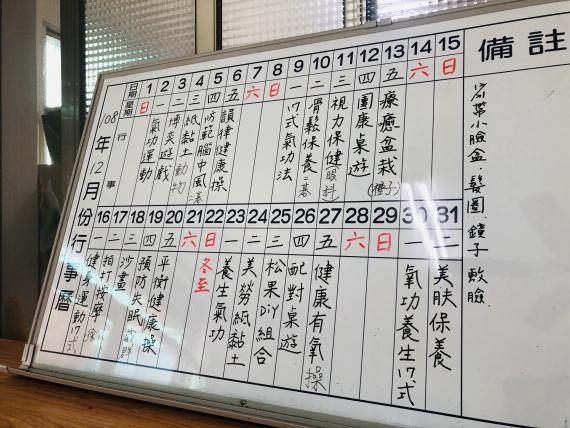 08年12月份行事曆
日期 1 2 3 4 5 6 7 8 9 10 11 12 13 14 15
星期 日 一 二 三 四 五 六 日 一 二 三 四 五 六 日
行事
氣功運動
博奕遊戲
紙黏土動物
防範腦中風
韻律健康操
17式氣功法
骨鬆保養
視力保健(眼科)
團康桌遊
療癒盆栽(種子)
16 17 18 19 20 21 22 23 24 25 26 27 28 29 30 31
一 二 三 四 五 六 日 一 二 三 四 五 六 日 一 二
健身運動17
拍打按摩
沙畫
預防失眠
健康操
冬至
養生氣功
美勞紙黏土
松果DiY組合
配對桌遊
健康有氧操
氣功養生17式
美膚保養
備註
帶小臉盆.髮圈.鏡子敷臉.